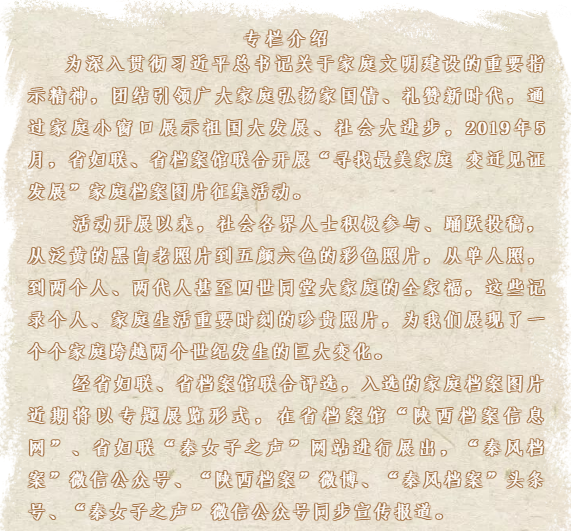 专栏介绍
为深入贯彻习近平总书记关于家庭文明建设的重要指
示精神，团结引领广大家庭弘扬家国情、礼赞新时代，通
过家庭小窗口展示祖国大发展、社会大进步，2019年5
月，省妇联、省档案馆联合开展“寻找最美家庭 变迁见证
发展”家庭档案图片征集活动。
活动开展以来，社会各界人士积极参与、踊跃投稿，
从泛黄的黑白老照片到五颜六色的彩色照片，从单人照，
到两个人、两代人甚至四世同堂大家庭的全家福，这些记
录个人、家庭生活重要时刻的珍贵照片，为我们展现了一
个个家庭跨越两个世纪发生的巨大变化。
经省妇联、省档案馆联合评选，入选的家庭档案图片
近期将以专题展览形式，在省档案馆“陕西档案信息
网”、省妇联“秦女子之声”网站进行展出，“秦风档
案”微信公众号、“陕西档案”微博、“秦风档案”头条
号、“秦女子之声”微信公众号同步宣传报道。